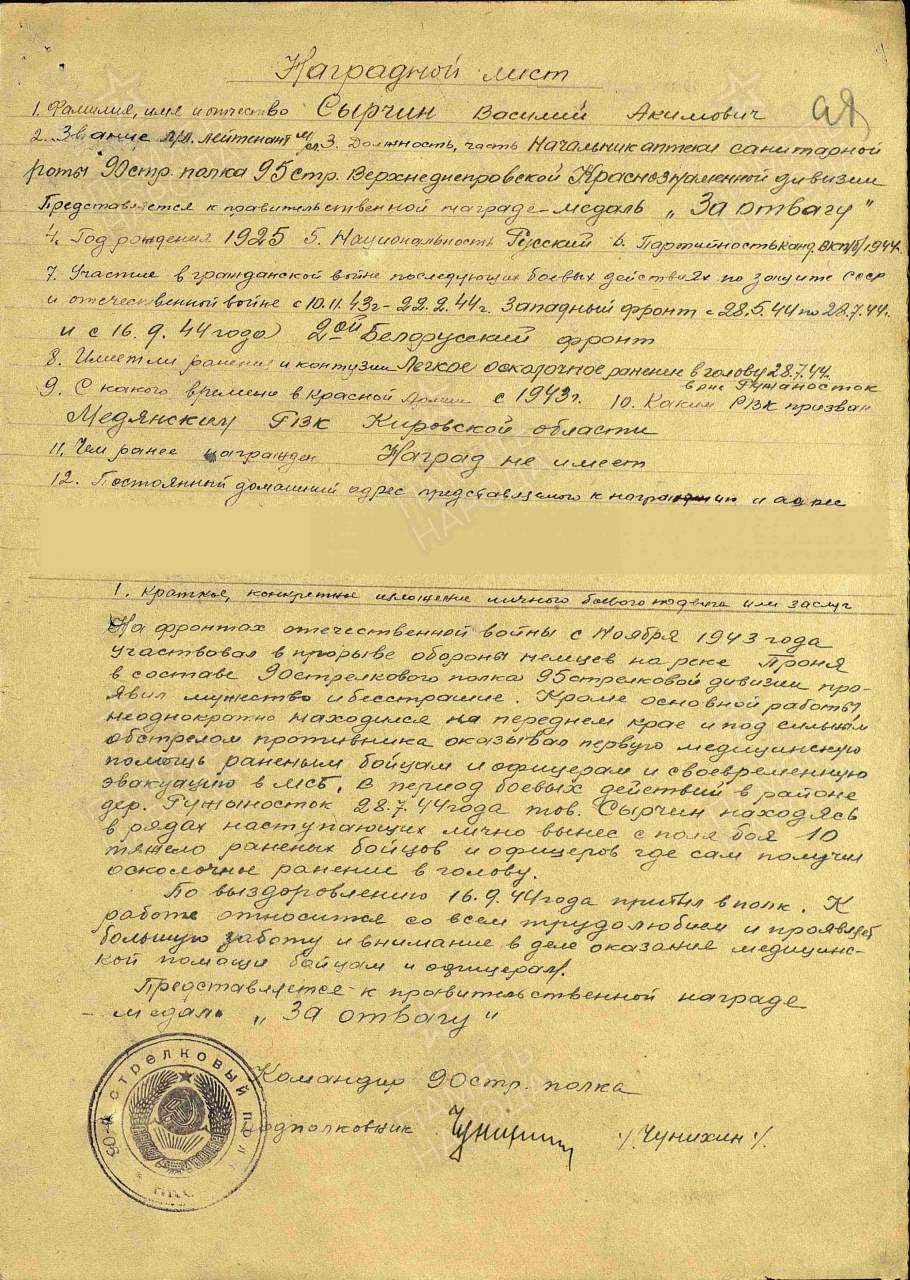 Наградной лист
1. Фамилия, имя и отчество Сырчин Василий Акимович
2. Звание мл. лейтенант м/сл 3. Должность, часть Начальник аптеки санитарной
роты 90 стр. полка 95 стр. Верхнеднепровской Краснознаменной дивизии
Представляется к правительственной награде – медаль „За отвагу"
4. Год рождения 1925 5. Национальность Русский 6. Партийность канд. ВКП/б/ 1944г.
7. Участие в гражданской войне последующих боевых действиях по защите СССР
и отечественной войне с 10.11.43г – 22.2.44г. Западный фронт с 28.5.44 по 28.7.44г.
и с 16.9.44 года 2ой Белорусский фронт
8. Имеет ли ранения и контузии Легкое осколочное ранен в голову 28.7.44.
9. С какого времени в Красной Армии с 1943г. 10. Каким РВК призван
Медянским РВК Кировской области
11. Чем ранее награжден Наград не имеет
12. Постоянный домашний адрес представляемого к и адрес
1. Краткое, конкретное изложение личного боевого подвига или заслуг
На фронтах отечественной войны с Ноября 1943 года
участвовал в прорыве обороны немцев на реке Проня
в составе 90 стрелкового полка 95 стрелковой дивизии про-
явил мужество и бесстрашие. Кроме основной работы
неоднократно находился на переднем крае и под сильным
обстрелом противника оказывал первую медицинскую
помощь раненым бойцам и офицерам и своевременную
эвакуацию в МСБ. В период боевых действий в районе
дер. 28.7.44 года тов. Сырчин находясь
в рядах наступающих лично вынес с поля боя 10
тяжело раненых бойцов и офицеров где сам получил
осколочное ранение в голову.
По выздоровлению 16.9.44 года прибыл в полк. К
работе относится со всем трудолюбием и проявляет
большую заботу и внимание в деле оказания медицинс-
кой помощи бойцам и офицерам.
Представляется к правительственной награде
– медаль „За отвагу"
Командир 90 стр. полка
подполковник /Чунихин/.
90-й стрелковый полк
НКО
ПАМЯТЬ НАРОДА